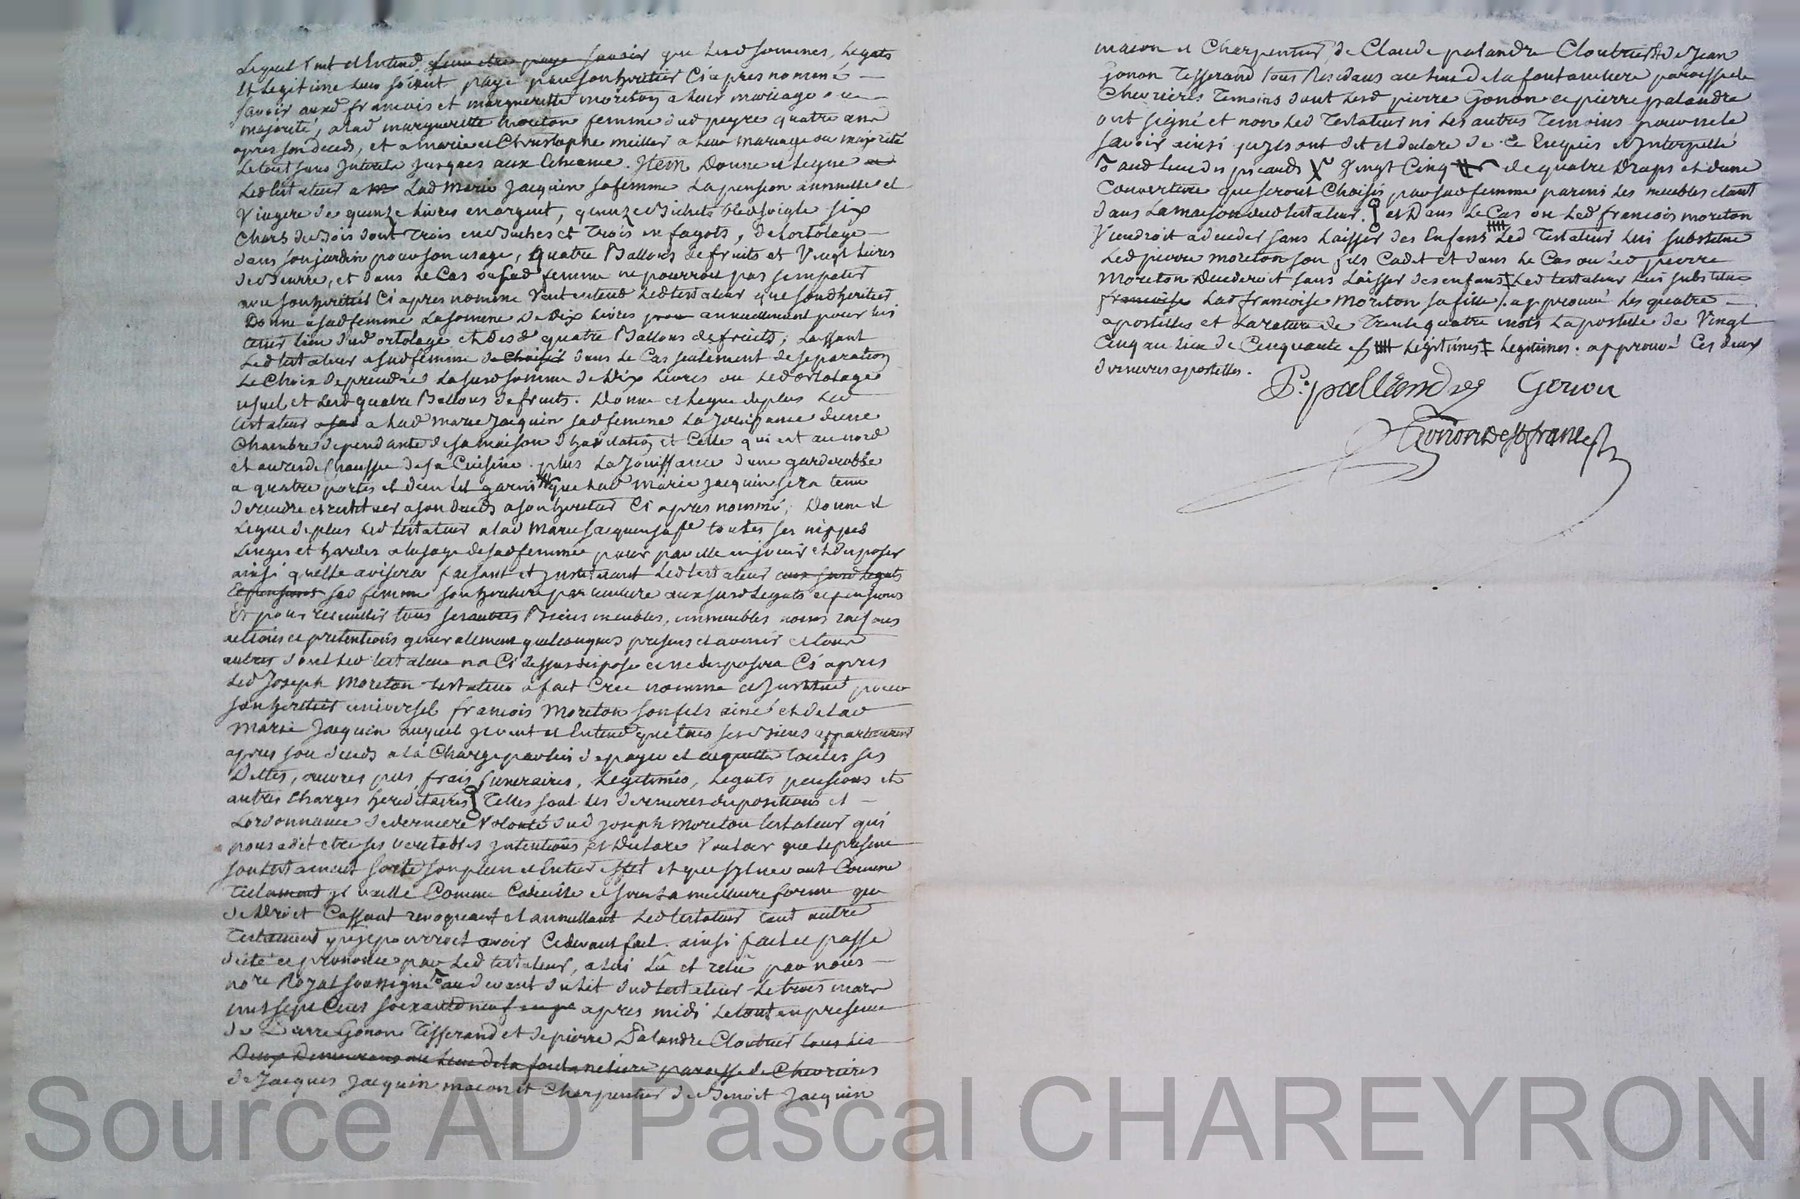 Lequel veut et Entend que lesd sommes, Legats
Et Legitime leur soient payé par son heritier Ci apres nommé
savoir auxd francois et margueritte moreton a leur mariage ou
majorité, a lad margueritte moreton femme dud peyre quatre ans
apres son deceds, et a marie et Christophe meiller a leur mariage ou majorité
Le tout sans Interets jusques aux Echeance. Item Donne et Legue
Led testateur a Lad Marie Jacquin sa femme La pension annuelle et
Viagere de quinze Livres en argent, quinze Bichets bled seigle six
Chars de Bois dont trois en Buches et Trois en fagots, de Lortolage
dans son jardin pour son usage, quatre Ballons de fruits et Vingt Livres
de Beurre, et dans le Cas ou sad femme ne pourroit pas simpatir
avec son heritier Ci apres nommé Veut entend Led testateur que sond heritier
Donne a sad femme La somme de Dix Livres annuellement pour lui
tenir lieu dud ortolage et desd quatre Ballons de fruits, Laissant
Led testateur a sad femme dans le Cas seulement de separation
Le Choix de prendre La susd somme de Dix Livres ou Led ortolage
usuel et Lesd quatre Ballons de fruits. Donne et Legue de plus Led
testateur a Lad marie Jacquin sad femme La Jouissance dune
Chambre dependante de sa maison dhabitation et Celle qui est au nord
et au rendechaussée de sa Cuisine. plus La Jouissance dune garderobbe
a quatre portes et dun Lit garni que Lad Marie Jacquin sera tenu
de rendre et restituer a son deceds a son heritier Ci apres nommé, Donne et
Legue de plus Led testateur a lad Marie Jacquin sa fe toutes ses nippes
Linges et hardes a lusage de sad femme pour par elle en jouir et disposer
ainsi quelle avisera faisant et Instituant Led testateur aux susd Legats
sad femme son heritiere particuliere aux susd Legats et pensions
Et pour recueillir tous ses autres Biens meubles, immeubles noms raisons
actions et pretentions generallement quelconques presens et avenir et tous
autres dont Led testateur na Ci dessus disposé et ne disposera Ci apres
Led Joseph Moreton testateur a fait Créé nommé et Institué pour
son heritier universel francois Moreton son fils ainé et de Lad
Marie Jacquin auquel Il veut et Entend que tous ses Biens appartiennent
apres son deceds a la Charge par lui de payer et acquitter toutes ses
Dettes, œuvres pies, frais funeraires, Legitimes, Legats pensions et
autres Charges hereditaires Telles sont les dernieres dispositions et
Lordonnance de derniere Volonté dud Joseph Moreton testateur qui
nous a dit etre ses veritables Intentions, et Declare Vouloir que le present
son testament sorte son plein et Entier effet et que sil ne vaut Comme
Testament Il vaille Comme Codicille et sous La meilleure forme que
de Droit Cassant revoquant et annullant Led testateur tout autre
Testament quil pourroit avoir Cidevant fait. ainsi fait et passé
dicté et prononcé par Led testateur, a lui Lû et relû par nous
nore Royal soussigné au devant du Lit dud testateur Le trois mars
mil sept Cens soixante neuf apres midi Le tout en presence
de Pierre Gonon Tisserand et de pierre Palandre Cloutier tous les
Deux Demeurans au Lieu de la fontaneliere paroisse de Chevrieres
de Jacques Jacquin macon et Charpentier de Benoit Jacquin
macon et Charpentier, de Claude palandre Cloutier et de Jean
Gonon Tisserand tous Residans au Lieu de la fontaneliere paroisse de
Chevrieres Temoins dont Lesd pierre Gonon et pierre palandre
ont signé et non Led Testateur ni Les autres Temoins pour ne le
savoir ainsi quils ont dit et declaré de Ce Enquis et Interpellé
aud Lieu des picauds X Vingt Cinq de quatre Draps et dune
Couverture qui seront Choisis par sad femme parmi Les meubles etant
dans La maison dud testateur. et Dans Le Cas ou Led francois moreton
Viendroit a deceder sans Laisser des Enfans Led Testateur lui substitue
Led pierre moreton son fils Cadet et dans le Cas ou Led pierre
Moreton Decederoit sans Laisser des enfans Led testateur Lui substitue
francoise Lad francoise Moreton sa fille. approuvé Les quatre
apostilles et La rature de Trente quatre mots Lapostille de Vingt
Cinq au lieu de Cinquante Legitimes Legitimes. approuvé Ces deux
dernieres apostilles.
P. pallandre Gonon
Gonon de St frane
Source AD Pascal CHAREYRON